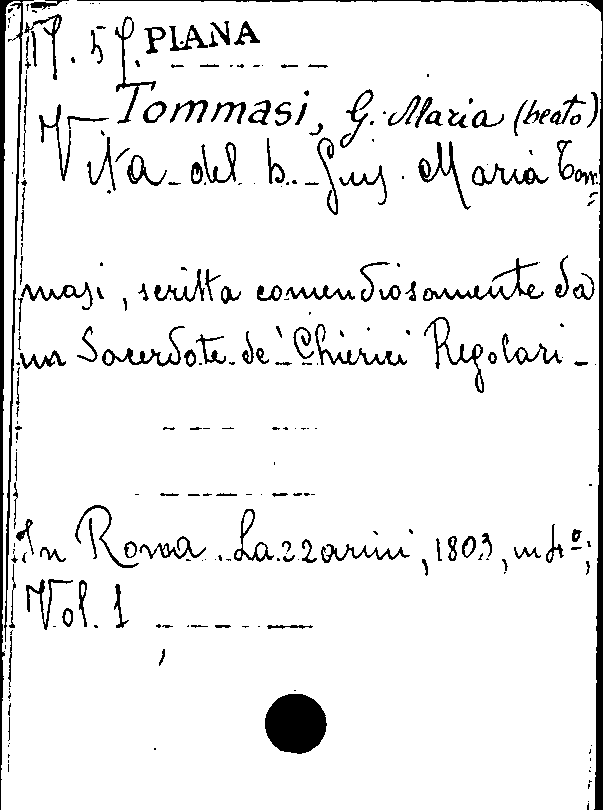 57. PIANA
Tommasi, G. Maria (beato)
Vita del b. Gius. Maria Tom=
masi, scritta comendiosamente da
un Sacerdote de' Chierici Regolari -
In Roma. Lazzarini, 1803, in 4º;
Vol. 1